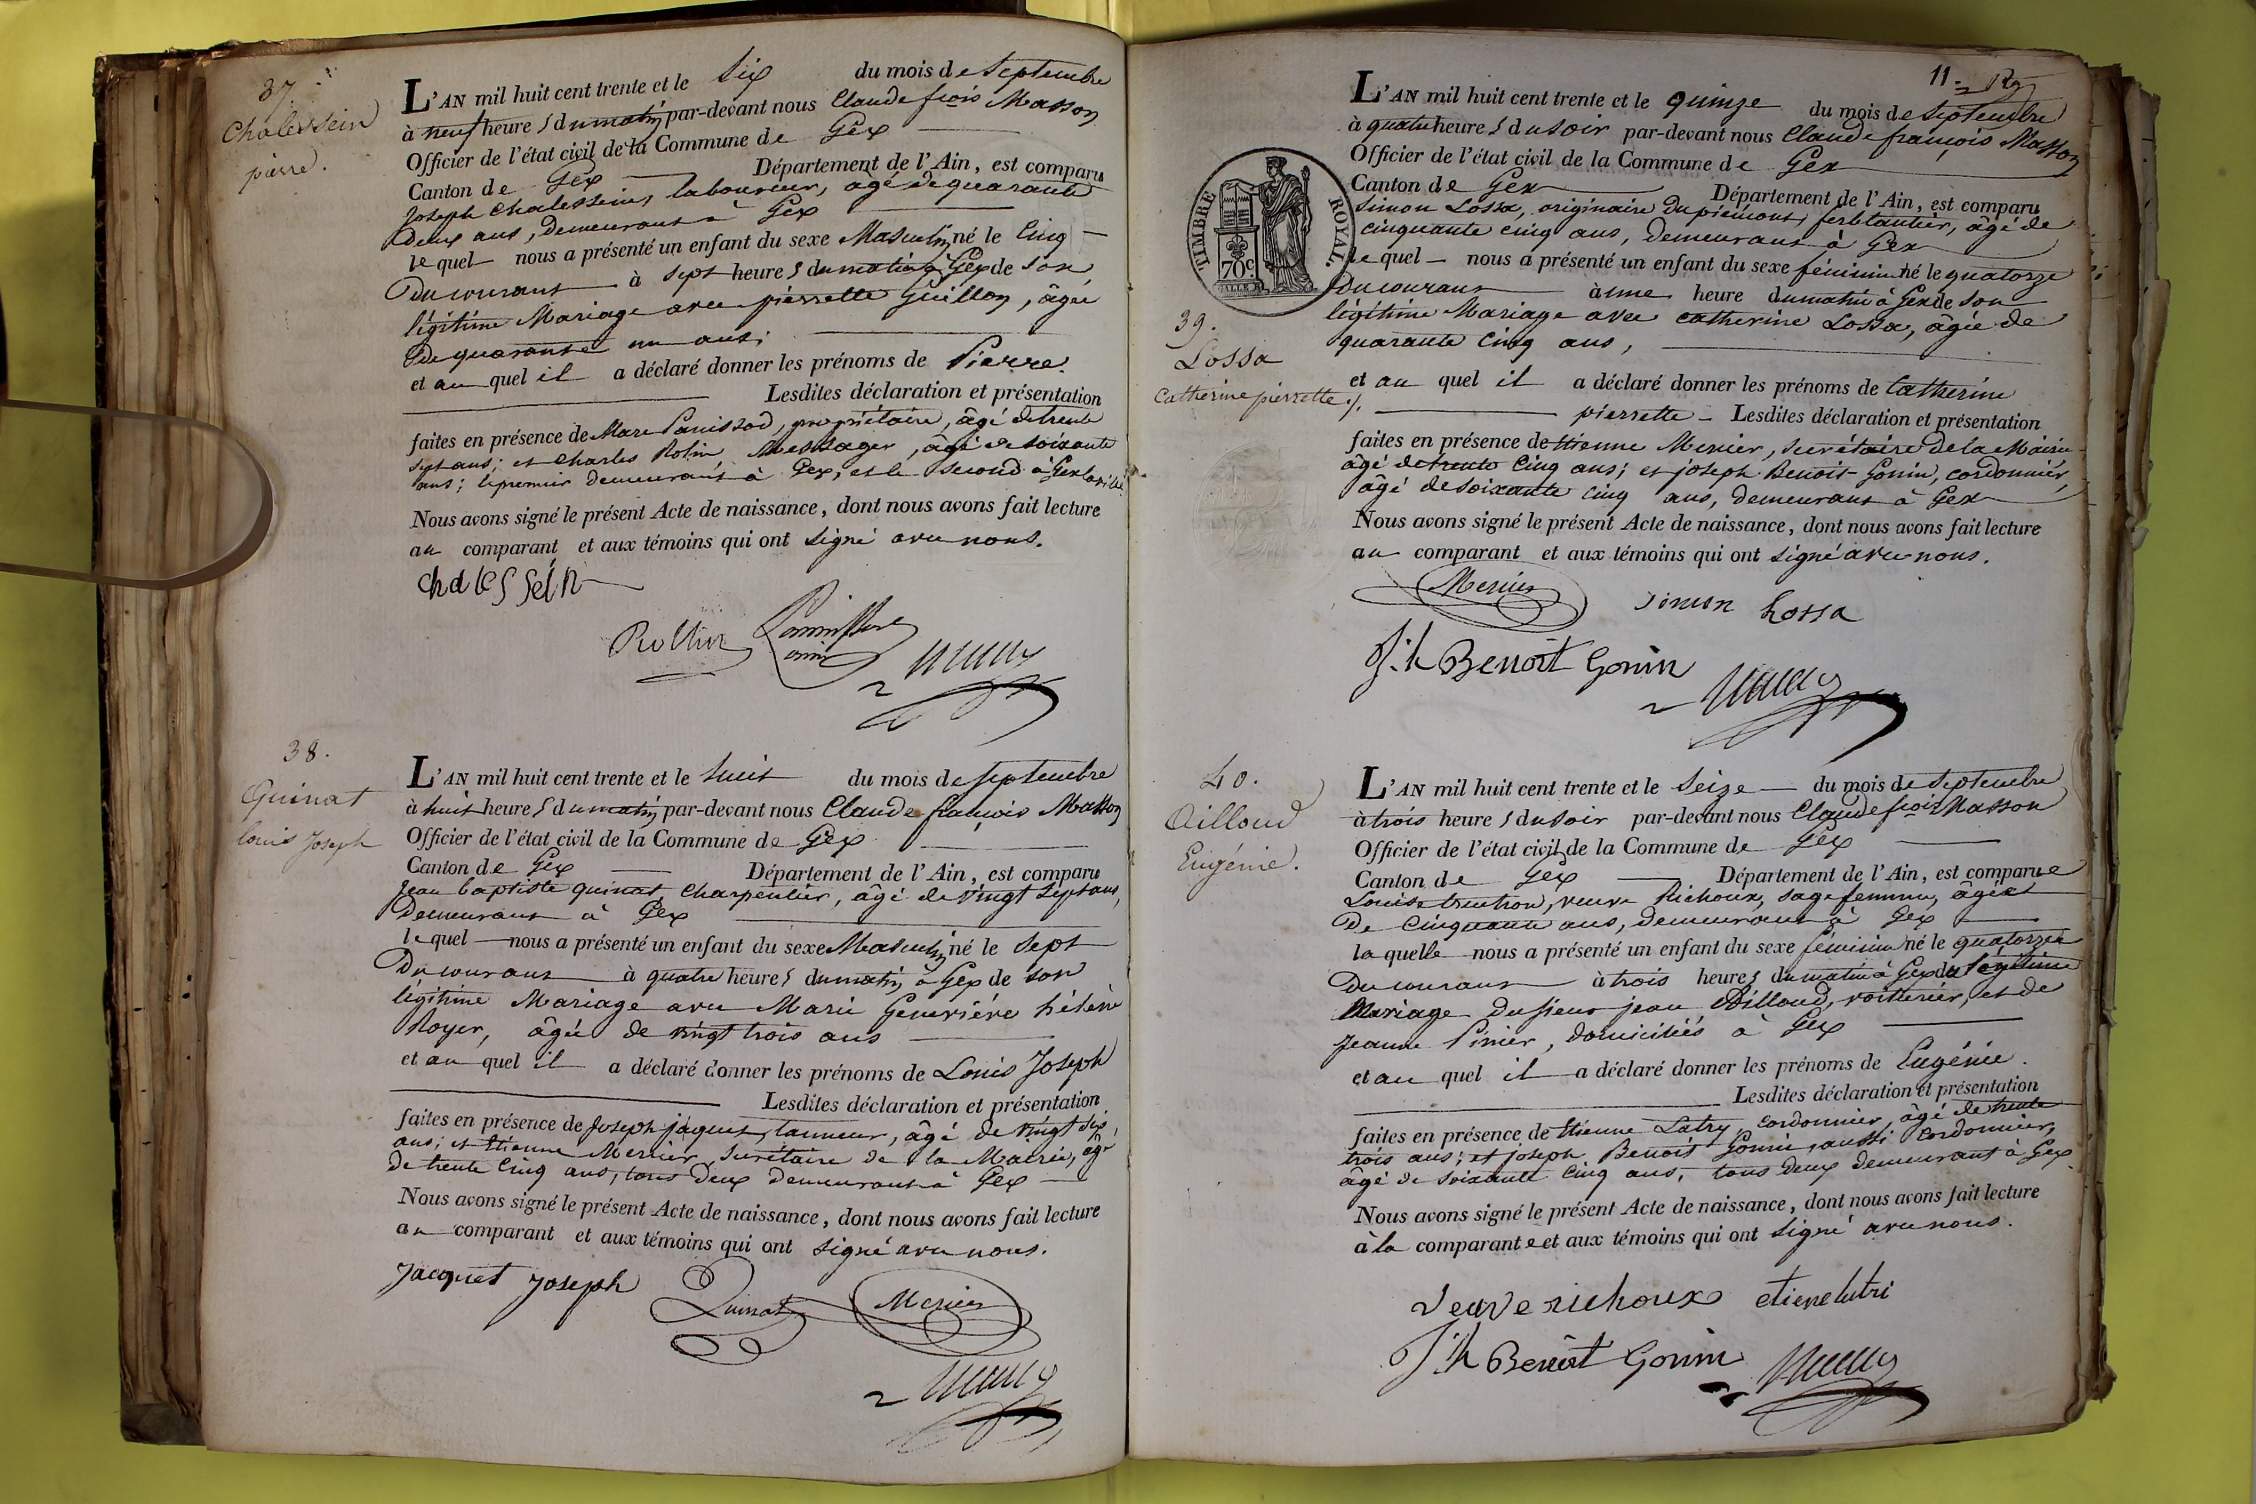 37.
Chalessein
pierre.
L'AN mil huit cent trente et le Six du mois de Septembre
à neuf heures du matin par-devant nous Claude frois Masson
Officier de l'état civil de la Commune de Gex
Canton de Gex Département de l'Ain, est comparu
Joseph Chalessein, laboureur, âgé de quarante
deux ans, demeurant à Gex
lequel nous a présenté un enfant du sexe Masculin né le Cinq
du courant à sept heures du matin à Gex de son
légitime Mariage avec pierrette Guillon, âgée
de quarante un ans;
et au quel il a déclaré donner les prénoms de Pierre.
Lesdites déclaration et présentation
faites en présence de Marc Panissod, propriétaire, âgé de trente
sept ans; et Charles Rolin Messager, âgé de soixante
ans; le premier demeurant à Gex, et le second à Gex la ville
Nous avons signé le présent Acte de naissance, dont nous avons fait lecture
au comparant et aux témoins qui ont signé avec nous.
Chalessein
Rollin
38.
Quinat
louis Joseph
L'AN mil huit cent trente et le huit du mois de Septembre
à huit heures du matin par-devant nous Claude françois Masson
Officier de l'état civil de la Commune de Gex
Canton de Gex Département de l'Ain, est comparu
Jean baptiste quinat Charpentier, âgé de vingt sept ans,
Demeurant à Gex
lequel nous a présenté un enfant du sexe Masculin né le Sept
Du courant à quatre heures du matin à Gex de son
légitime Mariage avec Marie Geneviève hélène
Royer, âgée de vingt trois ans
et au quel il a déclaré donner les prénoms de Louis Joseph
Lesdites déclaration et présentation
faites en présence de Joseph jaquet, tanneur, âgé de vingt six
ans; et Etienne Mercier, Secrétaire de la Mairie, âgé
de trente cinq ans, tous deux demeurant à Gex
Nous avons signé le présent Acte de naissance, dont nous avons fait lecture
au comparant et aux témoins qui ont signé avec nous.
Jacquet Joseph Quinat Mercier
11.
39.
Lossa
Catherine pierrette
TIMBRE ROYAL.
70c
L'AN mil huit cent trente et le quinze du mois de Septembre
à quatre heures du soir par-devant nous Claude françois Masson
Officier de l'état civil de la Commune de Gex
Canton de Gex Département de l'Ain, est comparu
Simon Lossa, originaire du piémont, ferblantier, âgé de
cinquante cinq ans, demeurant à Gex
lequel nous a présenté un enfant du sexe féminin né le quatorze
Du courant à une heure du matin à Gex de son
légitime Mariage avec catherine Lossa, âgée de
quarante Cinq ans,
et au quel il a déclaré donner les prénoms de Catherine
pierrette Lesdites déclaration et présentation
faites en présence de Etienne Mercier, Secrétaire de la Mairie
âgé de trente Cinq ans; et joseph Benoit Gonin, cordonnier,
âgé de soixante cinq ans, demeurant à Gex
Nous avons signé le présent Acte de naissance, dont nous avons fait lecture
au comparant et aux témoins qui ont signé avec nous.
Mercier Simon Lossa
J.h Benoit Gonin
40.
Oilloud
Eugénie.
L'AN mil huit cent trente et le Seize du mois de Septembre
à trois heures du soir par-devant nous Claude frois Masson
Officier de l'état civil de la Commune de Gex
Canton de Gex Département de l'Ain, est comparue
Louise, veuve Richoux, sage femme, âgée
De Cinquante ans, demeurant à Gex
la quelle nous a présenté un enfant du sexe féminin né le quatorze
Du courant à trois heures du matin à Gex du légitime
Mariage du sieur jean Oilloud, voiturier, et de
Jeanne Pinier, domiciliés à Gex
et au quel il a déclaré donner les prénoms de Eugénie.
Lesdites déclaration et présentation
faites en présence de Etienne Latry, cordonnier, âgé de trente
trois ans; et joseph Benoit Gonin, aussi cordonnier,
âgé de soixante cinq ans, tous deux demeurant à Gex
Nous avons signé le présent Acte de naissance, dont nous avons fait lecture
à la comparante et aux témoins qui ont signé avec nous.
veuve richoux etiene latri
J.h Benoit Gonin